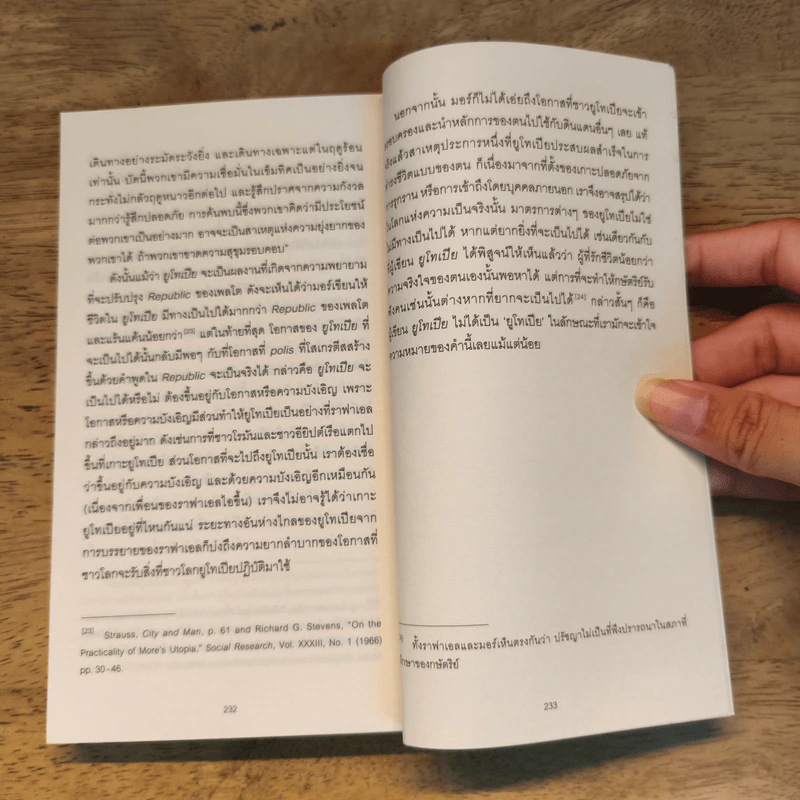 เดินทางอย่างระมัดระวังยิ่ง และเดินทางเฉพาะแต่ในฤดูร้อน
เท่านั้น บัดนี้พวกเขามีความเชื่อมั่นในเข็มทิศเป็นอย่างยิ่งจน
กระทั่งไม่กลัวฤดูหนาวอีกต่อไป และรู้สึกปราศจากความกังวล
มากกว่ารู้สึกปลอดภัย การค้นพบนี้ซึ่งพวกเขาคิดว่ามีประโยชน์
ต่อพวกเขาเป็นอย่างมาก อาจจะเป็นสาเหตุแห่งความยุ่งยากของ
พวกเขาได้ ถ้าพวกเขาขาดความสุขุมรอบคอบ"
ดังนั้นแม้ว่า ยูโทเปีย จะเป็นผลงานที่เกิดจากความพยายาม
ที่จะปรับปรุง Republic ของเพลโต ดังจะเห็นได้ว่ามอร์เขียนให้
ชีวิตใน ยูโทเปีย มีทางเป็นไปได้มากกว่า Republic ของเพลโต
และแร้นแค้นน้อยกว่า[23] แต่ในท้ายที่สุด โอกาสของ ยูโทเปีย ที่
จะเป็นไปได้นั้นกลับมีพอๆ กับที่โอกาสที่ polis ที่โสเกรตีสสร้าง
ขึ้นด้วยคำพูดใน Republic จะเป็นจริงได้ กล่าวคือ ยูโทเปีย จะ
เป็นไปได้หรือไม่ ต้องขึ้นอยู่กับโอกาสหรือความบังเอิญ เพราะ
โอกาสหรือความบังเอิญมีส่วนทำให้ยูโทเปียเป็นอย่างที่ราฟาเอล
กล่าวถึงอยู่มาก ดังเช่นการที่ชาวโรมันและชาวอียิปต์เรือแตกไป
ขึ้นที่เกาะยูโทเปีย ส่วนโอกาสที่จะไปถึงยูโทเปียนั้น เราต้องเชื่อ
ว่าขึ้นอยู่กับความบังเอิญ และด้วยความบังเอิญอีกเหมือนกัน
(เนื่องจากเพื่อนของราฟาเอลไอขึ้น) เราจึงไม่อาจรู้ได้ว่าเกาะ
ยูโทเปียอยู่ที่ไหนกันแน่ ระยะทางอันห่างไกลของยูโทเปียจาก
การบรรยายของราฟาเอลก็บ่งถึงความยากลำบากของโอกาสที่
ชาวโลกจะรับสิ่งที่ชาวโลกยูโทเปียปฏิบัติมาใช้
[23] Strauss, City and Man, p. 61 and Richard G. Stevens, "On the
Practicality of More's Utopia," Social Research, Vol. XXXIII, No. 1 (1966)
pp. 30-46.
232
นอกจากนั้น มอร์ก็ไม่ได้เอ่ยถึงโอกาสที่ชาวยูโทเปียจะเข้า
ครอบครองและนำหลักการของตนไปใช้กับดินแดนอื่นๆ เลย แท้
จริงแล้วสาเหตุประการหนึ่งที่ยูโทเปียประสบผลสำเร็จในการ
ดำรงชีวิตแบบของตน ก็เนื่องมาจากที่ตั้งของเกาะปลอดภัยจาก
การรุกราน หรือการเข้าถึงโดยบุคคลภายนอก เราจึงอาจสรุปได้ว่า
ในโลกแห่งความเป็นจริงนั้น มาตรการต่างๆ ของยูโทเปียไม่ใช่
ไม่มีทางเป็นไปได้ หากแต่ยากยิ่งที่จะเป็นไปได้ เช่นเดียวกันกับ
ที่ผู้เขียน ยูโทเปีย ได้พิสูจน์ให้เห็นแล้วว่า ผู้ที่รักชีวิตน้อยกว่า
ความจริงใจของตนเองนั้นพอหาได้ แต่การที่จะทำให้กษัตริย์รับ
ฟังคนเช่นนั้นต่างหากที่ยากจะเป็นไปได้[24] กล่าวสั้นๆ ก็คือ
ผู้เขียน ยูโทเปีย ไม่ได้เป็น 'ยูโทเปีย' ในลักษณะที่เรามักจะเข้าใจ
ความหมายของคำนี้เลยแม้แต่น้อย
ทั้งราฟาเอลและมอร์เห็นตรงกันว่า ปรัชญาไม่เป็นที่พึงปรารถนาในสภาที่
ปรึกษาของกษัตริย์
233